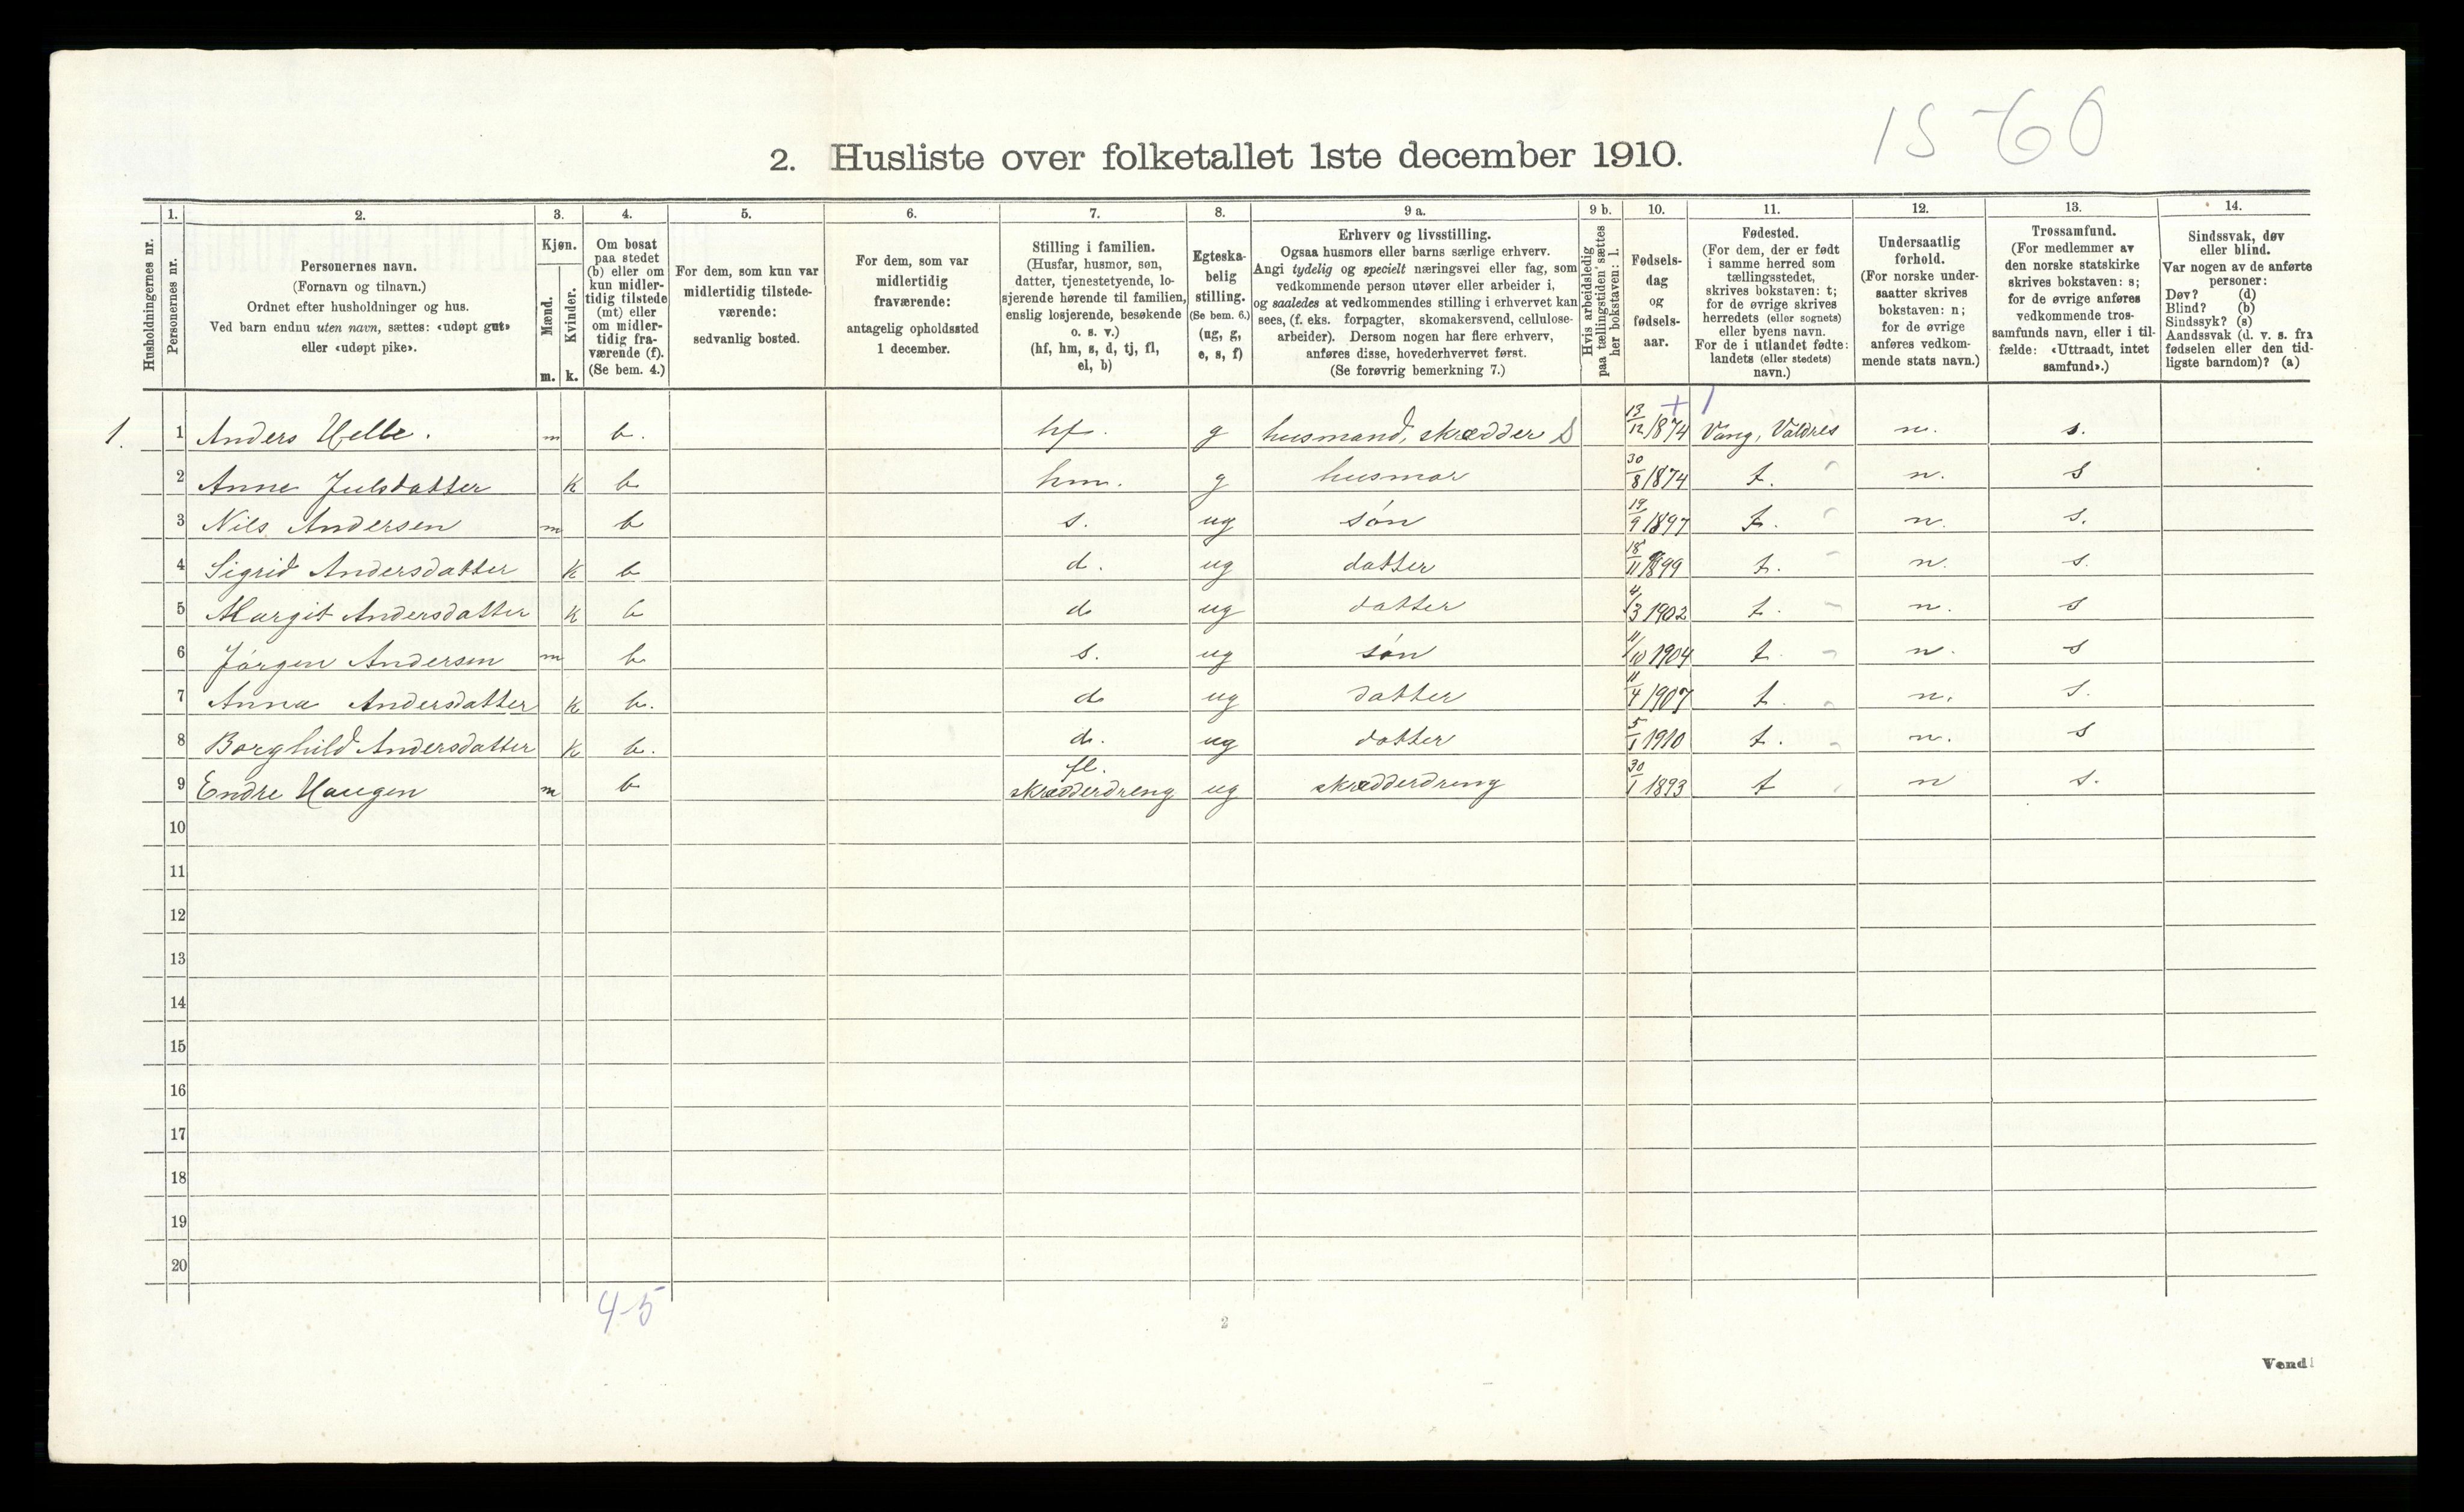 15 60
2. Husliste over folketallet 1ste december 1910.
Husholdningernes nr.
1.
Personernes nr.
2.
Personernes navn.
(Fornavn og tilnavn.)
Ordnet efter husholdninger og hus.
Ved barn endnu uten navn, sættes: «udøpt gut»
eller «udøpt pike».
3.
Kjøn.
Mænd.
Kvinder.
m. k.
4.
Om bosat
paa stedet
(b) eller om
kun midler-
tidig tilstede
(mt) eller
om midler-
tidig fra-
værende (f).
(Se bem. 4.)
5.
For dem, som kun var
midlertidig tilstede-
værende:
sedvanlig bosted.
6.
For dem, som var
midlertidig
fraværende:
antagelig opholdssted
1 december.
7.
Stilling i familien.
(Husfar, husmor, søn,
datter, tjenestetyende, lo-
sjerende hørende til familien,
enslig losjerende, besøkende
o. s. v.)
(hf, hm, s, d, tj, fl,
el, b)
8.
Egteska-
belig
stilling.
(Se bem. 6.)
(ug, g,
e, s, f)
9 a.
Erhverv og livsstilling.
Ogsaa husmors eller barns særlige erhverv.
Angi tydelig og specielt næringsvei eller fag, som
vedkommende person utøver eller arbeider i,
og saaledes at vedkommendes stilling i erhvervet kan
sees, (f. eks. forpagter, skomakersvend, cellulose-
arbeider). Dersom nogen har flere erhverv,
anføres disse, hovederhvervet først.
(Se forøvrig bemerkning 7.)
9 b.
Hvis arbeidsledig
paa tællingstiden sættes
her bokstaven: l.
10.
Fødsels-
dag
og
fødsels-
aar.
11.
Fødested.
(For dem, der er født
i samme herred som
tællingsstedet,
skrives bokstaven: t;
for de øvrige skrives
herredets (eller sognets)
eller byens navn.
For de i utlandet fødte:
landets (eller stedets)
navn.)
12.
Undersaatlig
forhold.
(For norske under-
saatter skrives
bokstaven: n;
for de øvrige
anføres vedkom-
mende stats navn.)
13.
Trossamfund.
(For medlemmer av
den norske statskirke
skrives bokstaven: s;
for de øvrige anføres
vedkommende tros-
samfunds navn, eller i til-
fælde: «Uttraadt, intet
samfund».)
14.
Sindssvak, døv
eller blind.
Var nogen av de anførte
personer:
Døv? (d)
Blind? (b)
Sindssyk? (s)
Aandssvak (d. v. s. fra
fødselen eller den tid-
ligste barndom)? (a)
1. 1 Anders Helle. m b. hf. g husmand, skrædder S 13/12 1874 Vang, Valdres n. s.
2 Anne Julsdatter k b hm. g husmor 30/8 1874 t. n. s
3 Nils Andersen m b s. ug søn 19/9 1897 t. n. s.
4 Sigrid Andersdatter k b d. ug datter 18/11 1899 t. n. s.
5 Margit Andersdatter k b d ug datter 4/3 1902 t. n. s
6 Jørgen Andersen m b s. ug søn 11/10 1904 t. n. s
7 Anna Andersdatter k b. d ug datter 11/4 1907 t. n. s.
8 Borghild Andersdatter k b. d. ug datter 5/1 1910 t. n. s
fl.
9 Endre Haugen m b skrædderdreng ug skrædderdreng 30/1 1893 t n s.
10
11
12
13
14
15
16
17
18
19
20
4-5
2
Vend!